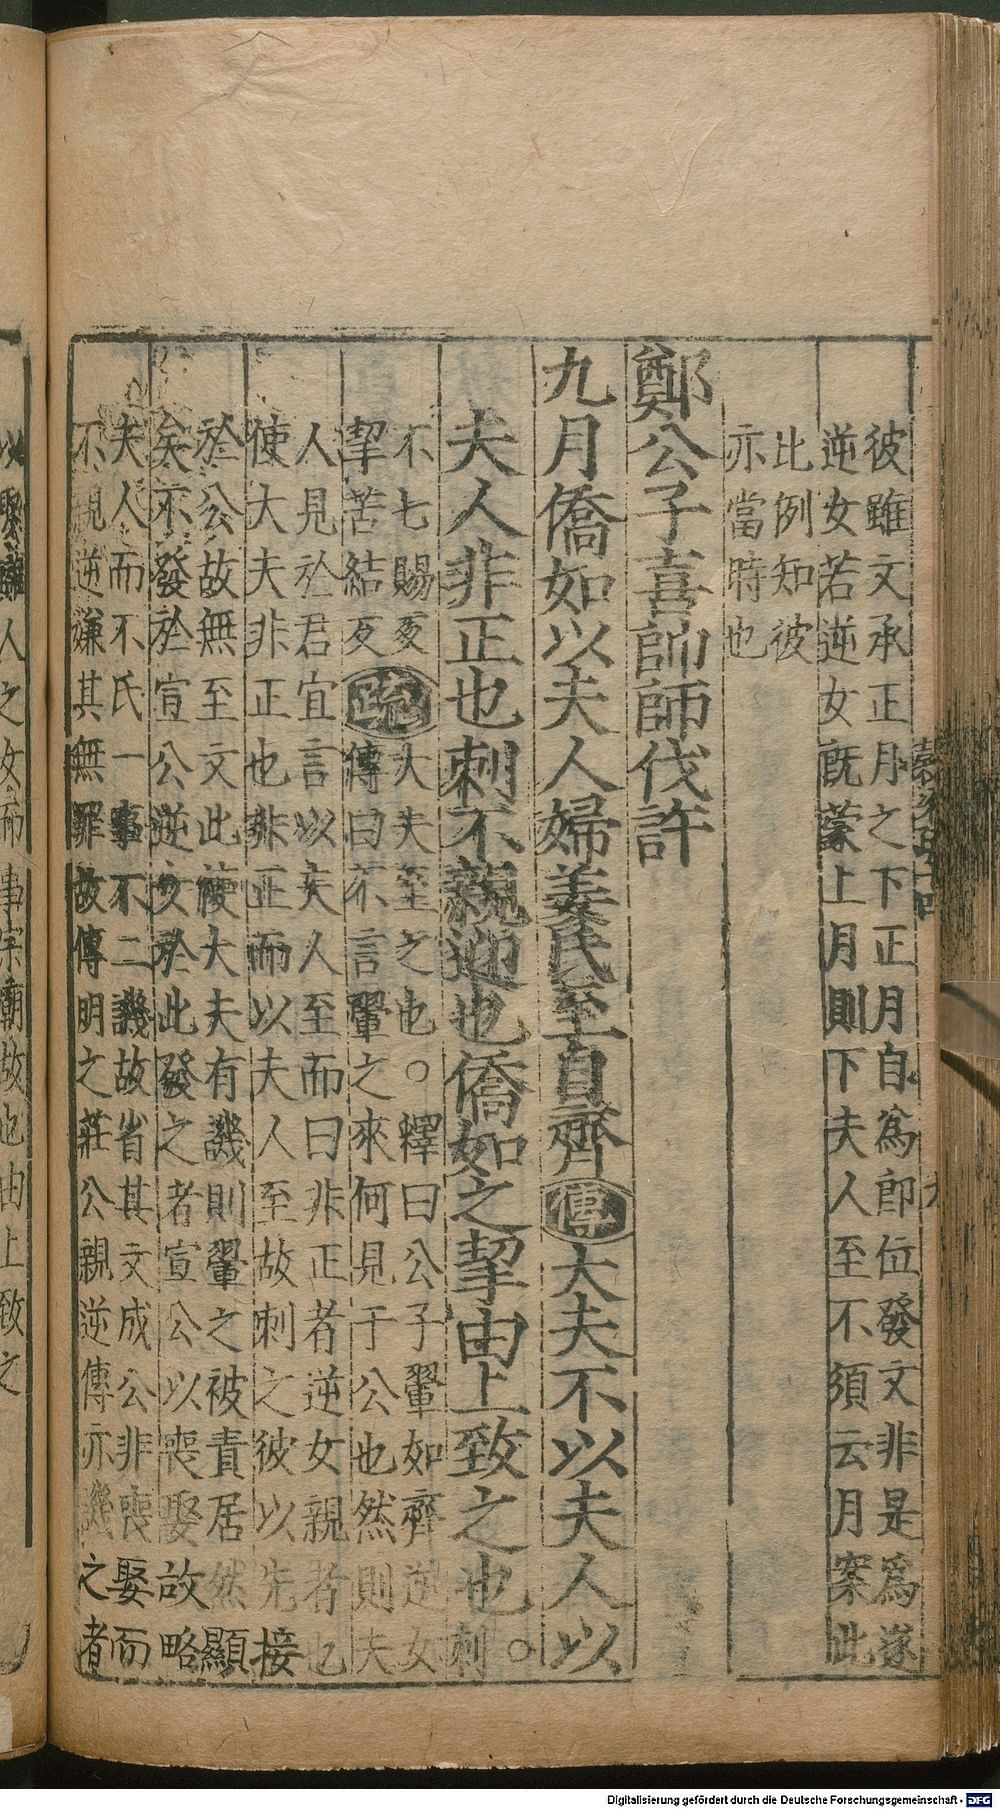 彼雖文承正月之下正月自爲郎位發文非是爲遂
逆女若逆女旣蒙上月則下夫人至不須云月案此
比例知彼
亦當時也
鄭公子喜帥師伐許
九月僑如以夫人婦姜氏至自齊傳大夫不以夫人以
夫人非正也刺不親迎也僑如之挈由上致之也○刺
不七賜反大夫至之也○釋曰公子翬如齊逆女
挈苦結反疏傳曰不言翬之來何見于公也然則夫
人見於君宜言以夫人至而曰非正者逆女親者也
使大夫非正也非正而以夫人至故刺之彼以先接
於公故無至文此使大夫有譏則翬之被責居然顯
矣不發於宣公逆女於此發之者宣公以喪娶故略
夫人而不氏一事不二譏故省其文成公非喪娶而
不親逆嫌其無罪故傳明之莊公親逆傳亦譏之者
人之女而事宗廟故也由上致之
Digitalisierung gefördert durch die Deutsche Forschungsgemeinschaft - DFG